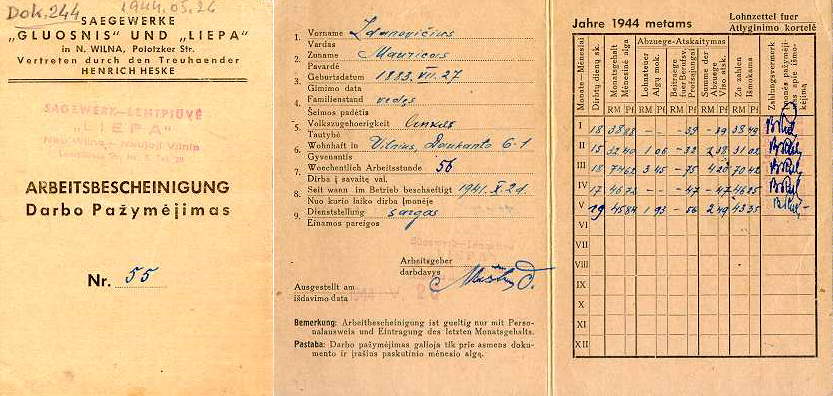 Dok. 244
1944.05.26
SAEGEWERKE
„GLUOSNIS" UND „LIEPA"
in N. WILNA, Polotzker Str.
Vertreten durch den Treuhaender
HENRICH HESKE
SAGEWERK—LENTPIUVĖ
„LIEPA"
Neu Wilna — Naujoji Vilnia
ARBEITSBESCHEINIGUNG
Darbo Pažymėjimas
Nr. 55
1. Vorname Zdanovičius
Vardas
2. Zuname
Pavardė
3. Geburtsdatum 1883.VII.27
Gimimo data
4. Familienstand vedęs
Šeimos padėtis
5. Volkszugehoerigkeit
Tautybė
6. Wohnhaft in Vilnius, Daukanto 6-1
Gyvenantis
7. Woechentlich Arbeitsstunde 56
Dirba į savaitę val.
8. Seit wann im Betrieb beschaeftigt 1941.X.2d.
Nuo kurio laiko dirba įmonėje
9. Dienststellung sargas
Einamos pareigos
Arbeitsgeber
darbdavys
Ausgestellt am
išdavimo data 1944 V. 26
Bemerkung: Arbeitbescheinigung ist gueltig nur mit Perso-
nalausweis und Eintragung des letzten Monatsgehalts.
Pastaba: Darbo pažymėjimas galioja tik prie asmens doku-
mento ir įrašius paskutinio mėnesio algą.
Jahre 1944 metams
Lohnzettel fuer
Atlyginimo kortelė
Monate - Mėnesiai
Dirbtų dienų sk.
Monatsgehalt
Mėnesinė alga
Abzuege-Atskaitymas
Lohnsteuer
Algų mok.
Beitraege
fuer Berufsv.
Profsąjungai
Summe der
Abzuege
Viso atsk.
Zu zahlen
Išmokama
Zahlungsvermerk
RM Pf RM Pf RM Pf RM Pf RM Pf
I 18 38 88 - - - 39 - 39 38 49
II 15 32 40 1 06 - 32 1 38 31 02
III 18 74 62 3 45 - 75 4 20 70 42
IV 17 46 72 - - - 47 - 47 46 25
V 19 45 84 1 93 - 56 2 49 43 35
VI
VII
VIII
IX
X
XI
XII